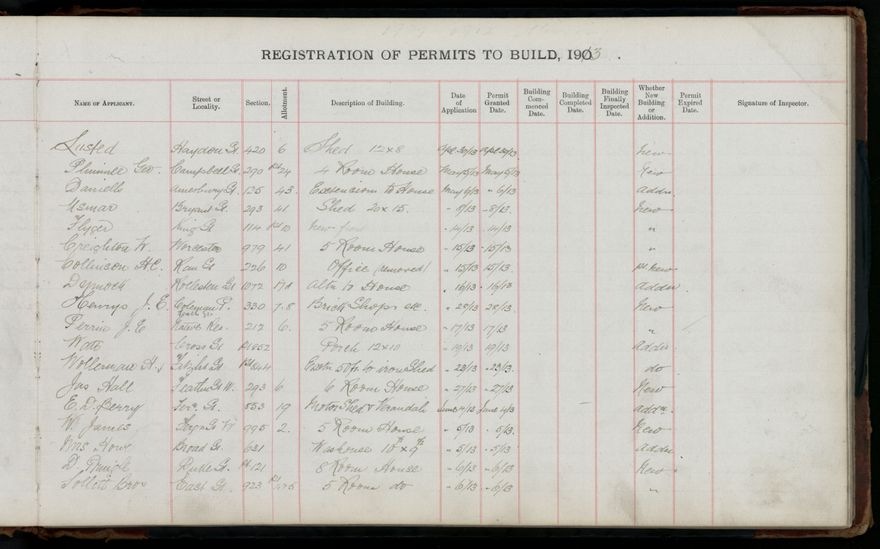 REGISTRATION OF PERMITS TO BUILD, 1913.
NAME OF APPLICANT. Street or Locality. Section. Allotment. Description of Building. Date of Application Permit Granted Date. Building Commenced Date. Building Completed Date. Building Finally Inspected Date. Whether New Building or Addition. Permit Expired Date. Signature of Inspector.
Lusted Haydon St. 420 6 Shed 12x8 Apl 30/13 Apl 30/13 New
Plimmle Geo. Campbell St. 290 Pt 24 4 Room House May 5/13 May 5/13 New
Daniells St. 125 43. Extension to House May 6/13 " 6/13 Addn
Usmar Bryant St. 293 41 Shed 20x15. " 8/13 " 8/13. New
King St 114 Pt 10 New " 14/13 " 14/13 "
Creighton W. Worcester 979 41 5 Room House " 15/13 " 15/13 "
Collinson H.C. 226 10 Office (removed) " 15/13 15/13. New
Dermott Rolleston St 1072 Alts to House " 16/13 " 16/13 Addn
Henrys J. E. Coleman P. 330 7.8 Brick Shops etc. " 20/13 20/13. New
Perrin J. E Native Res. 212 6. 5 Room House " 17/13 17/13 "
Watt Cross St 1852 Porch 12x10 " 19/13 19/13 Addn
Wollerman H. Fitzht St. 544 50ft to iron Shed " 23/13 " 23/13. do
Jas Hall Feather St W. 293 6 6 Room House " 27/13 " 27/13 New
E. D. Berry St. 553 19 Motor Shed & Verandah June 4/13 June 4/13 addn.
W. James St W 995 2. 5 Room House " 5/13 " 5/13. New
Mrs Howe Broad St. 631 Washouse 10ft x 9ft " 5/13 " 5/13 Addn
D. Pringle St. Pt 121 8 Room House " 6/13 " 6/13 New
Follett Bros East St. 923 5 Room do " 6/13 " 6/13 "